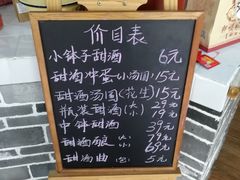 价目表
小钵子甜酒 6元
甜酒冲蛋(小汤圆)15元
甜酒汤圆(花生)15元
瓶装甜酒(大)29元
(小)19元
中钵甜酒 39元
甜酒 大 79元
小 69元
甜酒曲 5元